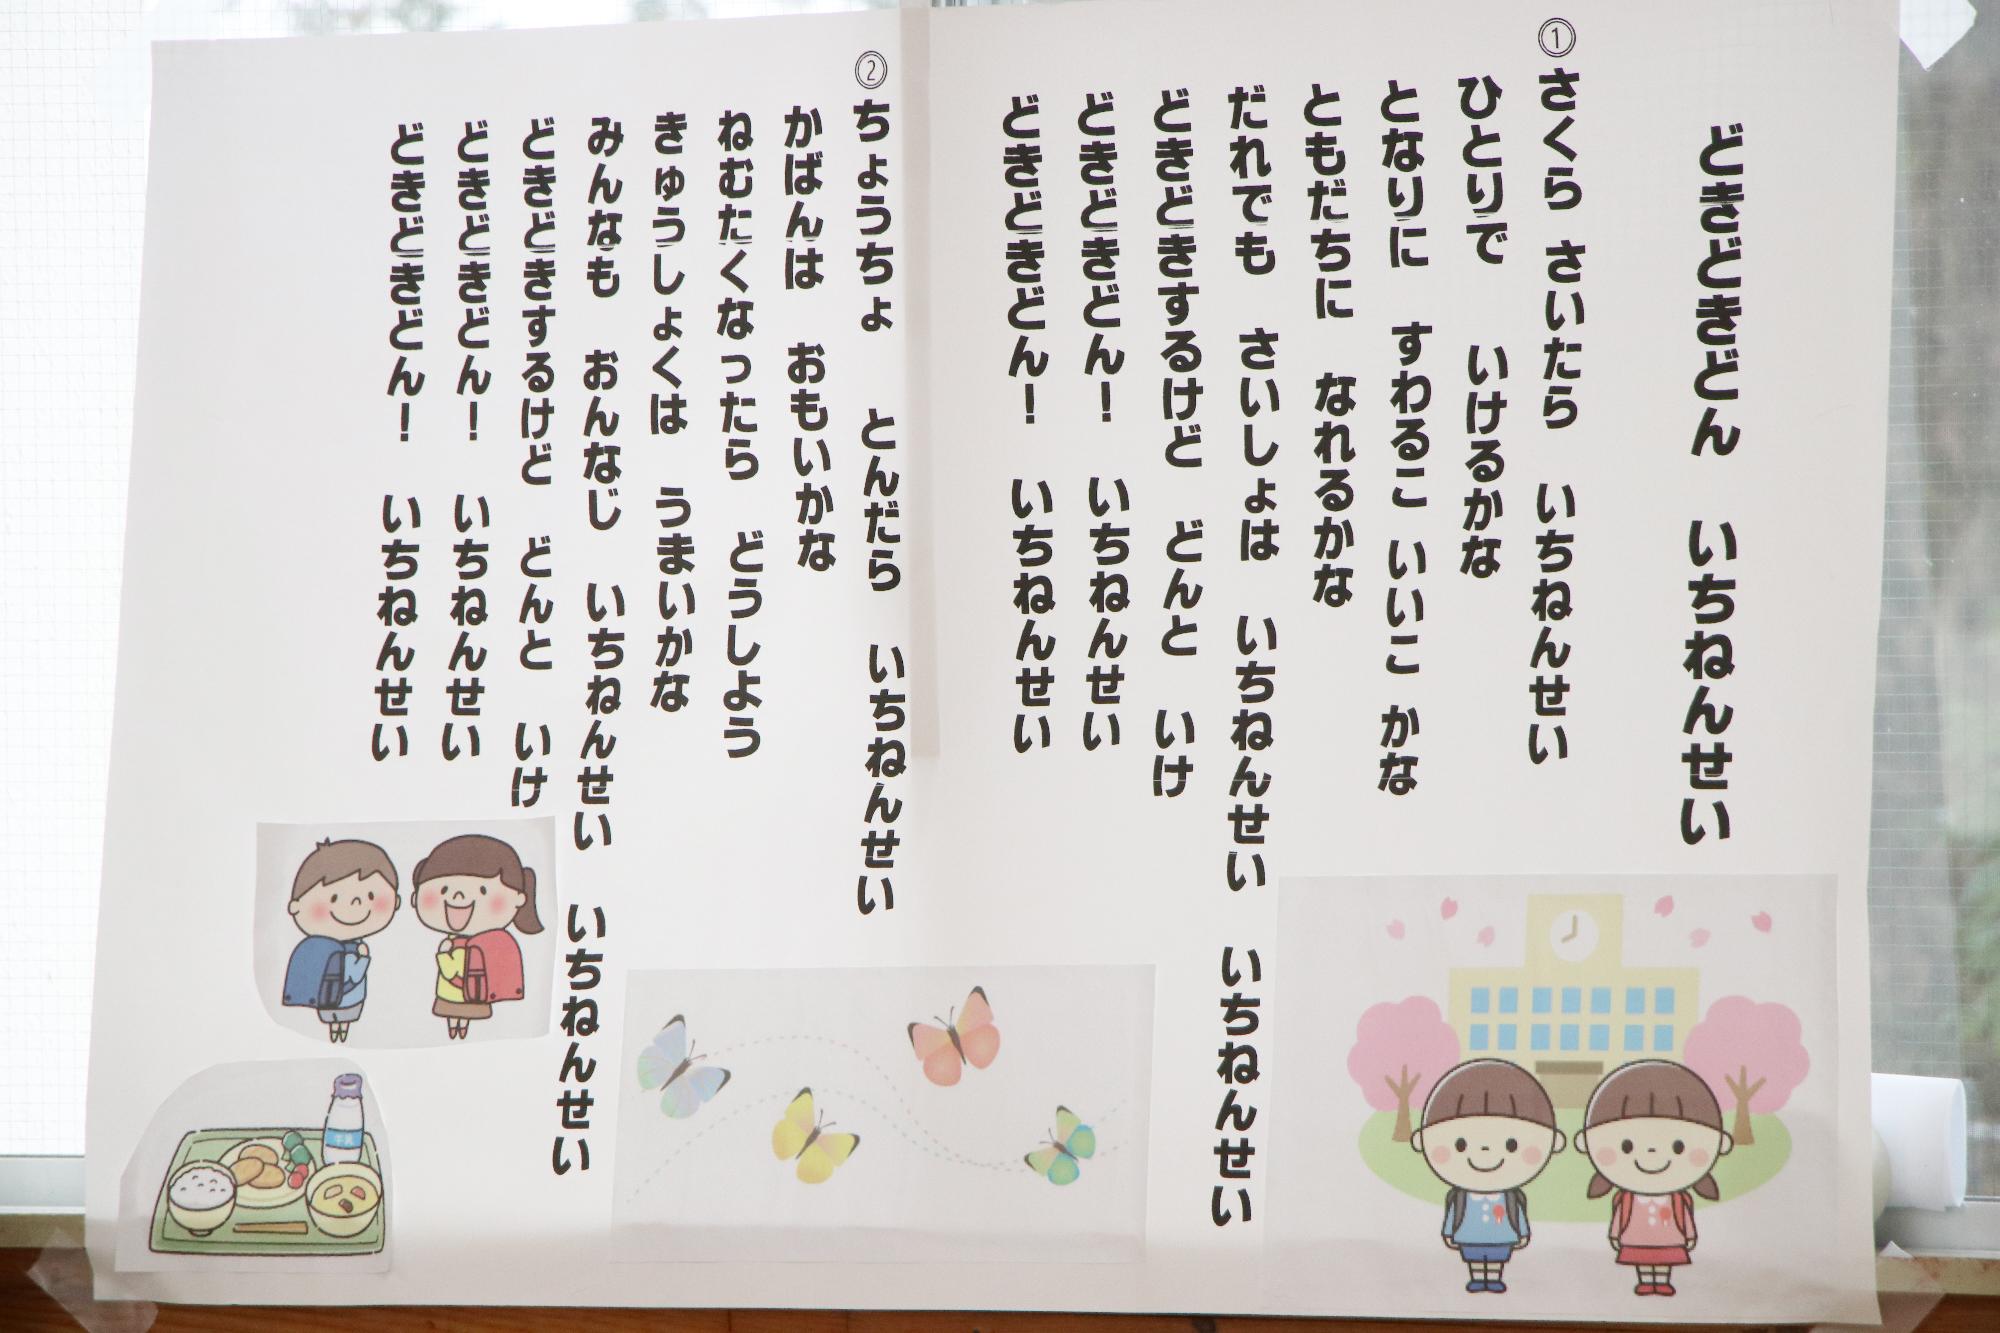 どきどきどん　いちねんせい
①さくら さいたら　いちねんせい
ひとりで　いけるかな
となりに　すわるこ いいこ かな
ともだちに　なれるかな
だれでも　さいしょは　いちねんせい　いちねんせい
どきどきするけど　どんと　いけ
どきどきどん！　いちねんせい
どきどきどん！　いちねんせい
②ちょうちょ　とんだら　いちねんせい
かばんは　おもいかな
ねむたくなったら　どうしよう
きゅうしょくは　うまいかな
みんなも　おんなじ　いちねんせい　いちねんせい
どきどきするけど　どんと　いけ
どきどきどん！　いちねんせい
どきどきどん！　いちねんせい
牛乳